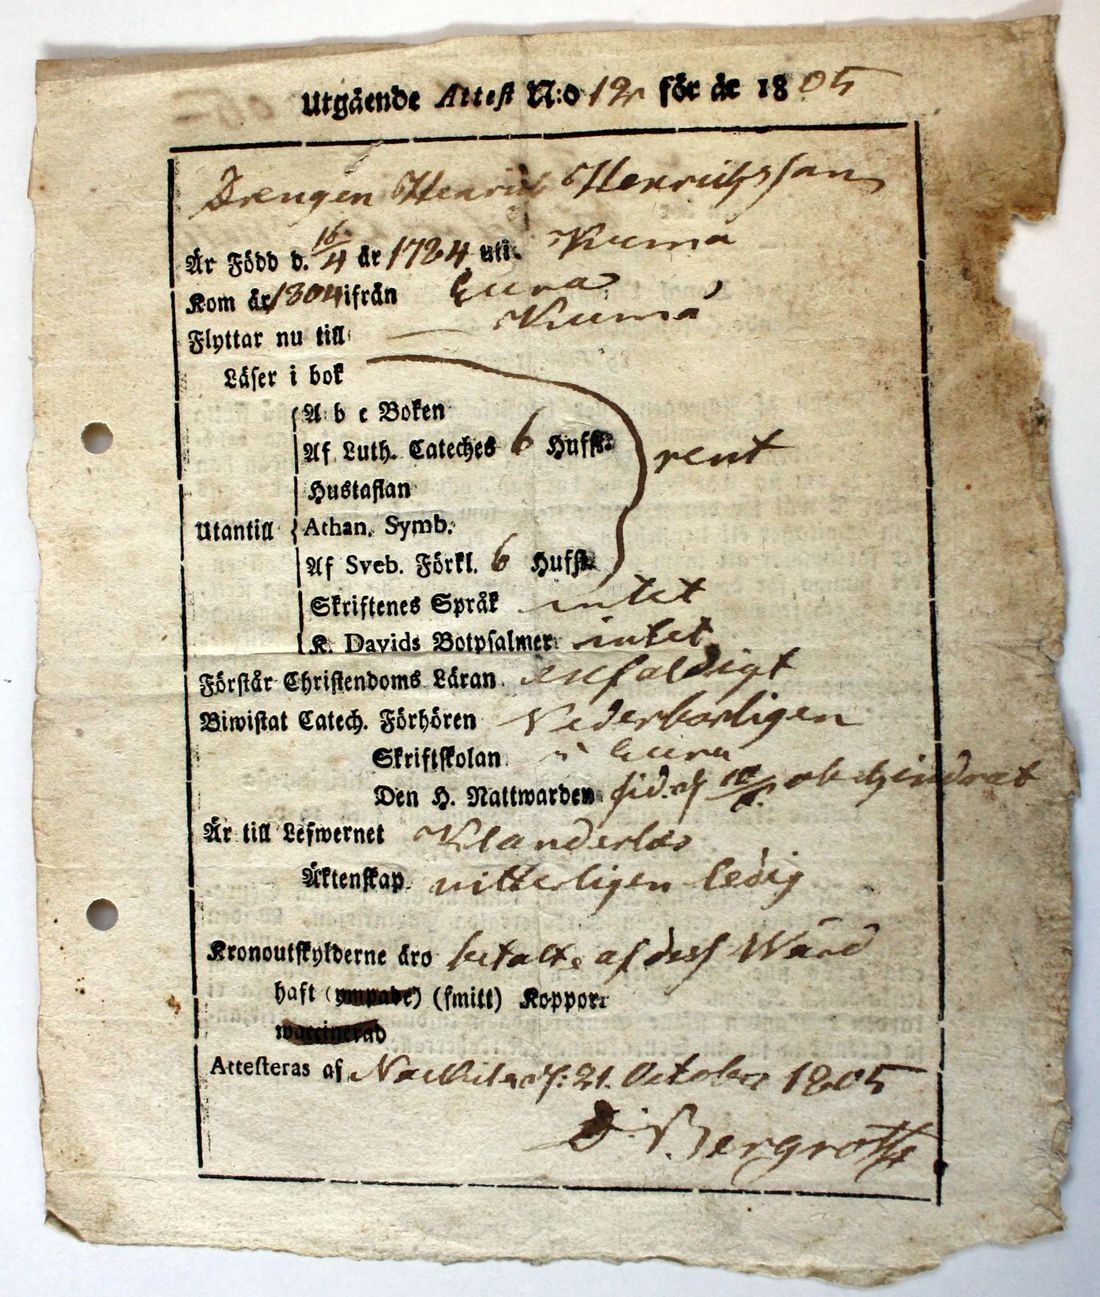 Utgående Attest N:o 12 för år 1805
Drengen Henric Henrichsson
Är Född d. 16/4 år 1784 uti Kumå
Kom år 1804 ifrån Eura
Flyttar nu till Kumå
Läser i bok
A b c Boken
Af Luth. Cateches 6 Hufst: rent
Hustaflan
Utantill Athan. Symb.
Af Sveb. Förkl. 6 Hufst.
Skriftenes Språk intet
K. Davids Botpsalmer intet
Förstår Christendoms Läran enfaldigt
Biwistat Catech. Förhören Vederborligen
Skriftskolan i Eura
Den H. Nattwarden obehindrat
Är till Lefwernet Klanderlös
Äktenskap vitterligen ledig
Kronoutskylderne äro betalte af dess Wärd
haft (ympade) (smitt) Koppor:
waccinerad
Attesteras af Nackila d: 21. Octobr 1805
D. Bergroth